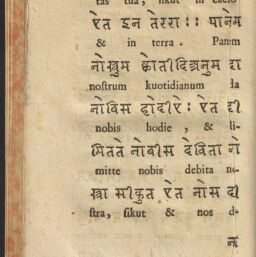 tas tua, sikut in caelo
एत इन तररा ։։ पानेम
& in terra. Panem
नोस्त्रुम क्वोतीदिअनुम दा
nostrum kuotidianum da
नोबिस होदीए ։ एत दी
nobis hodie, & di-
मितते नोबीस देबिता नो
mitte nobis debita no-
स्त्रा सीकुत एत नोस दी
stra, sikut & nos d-